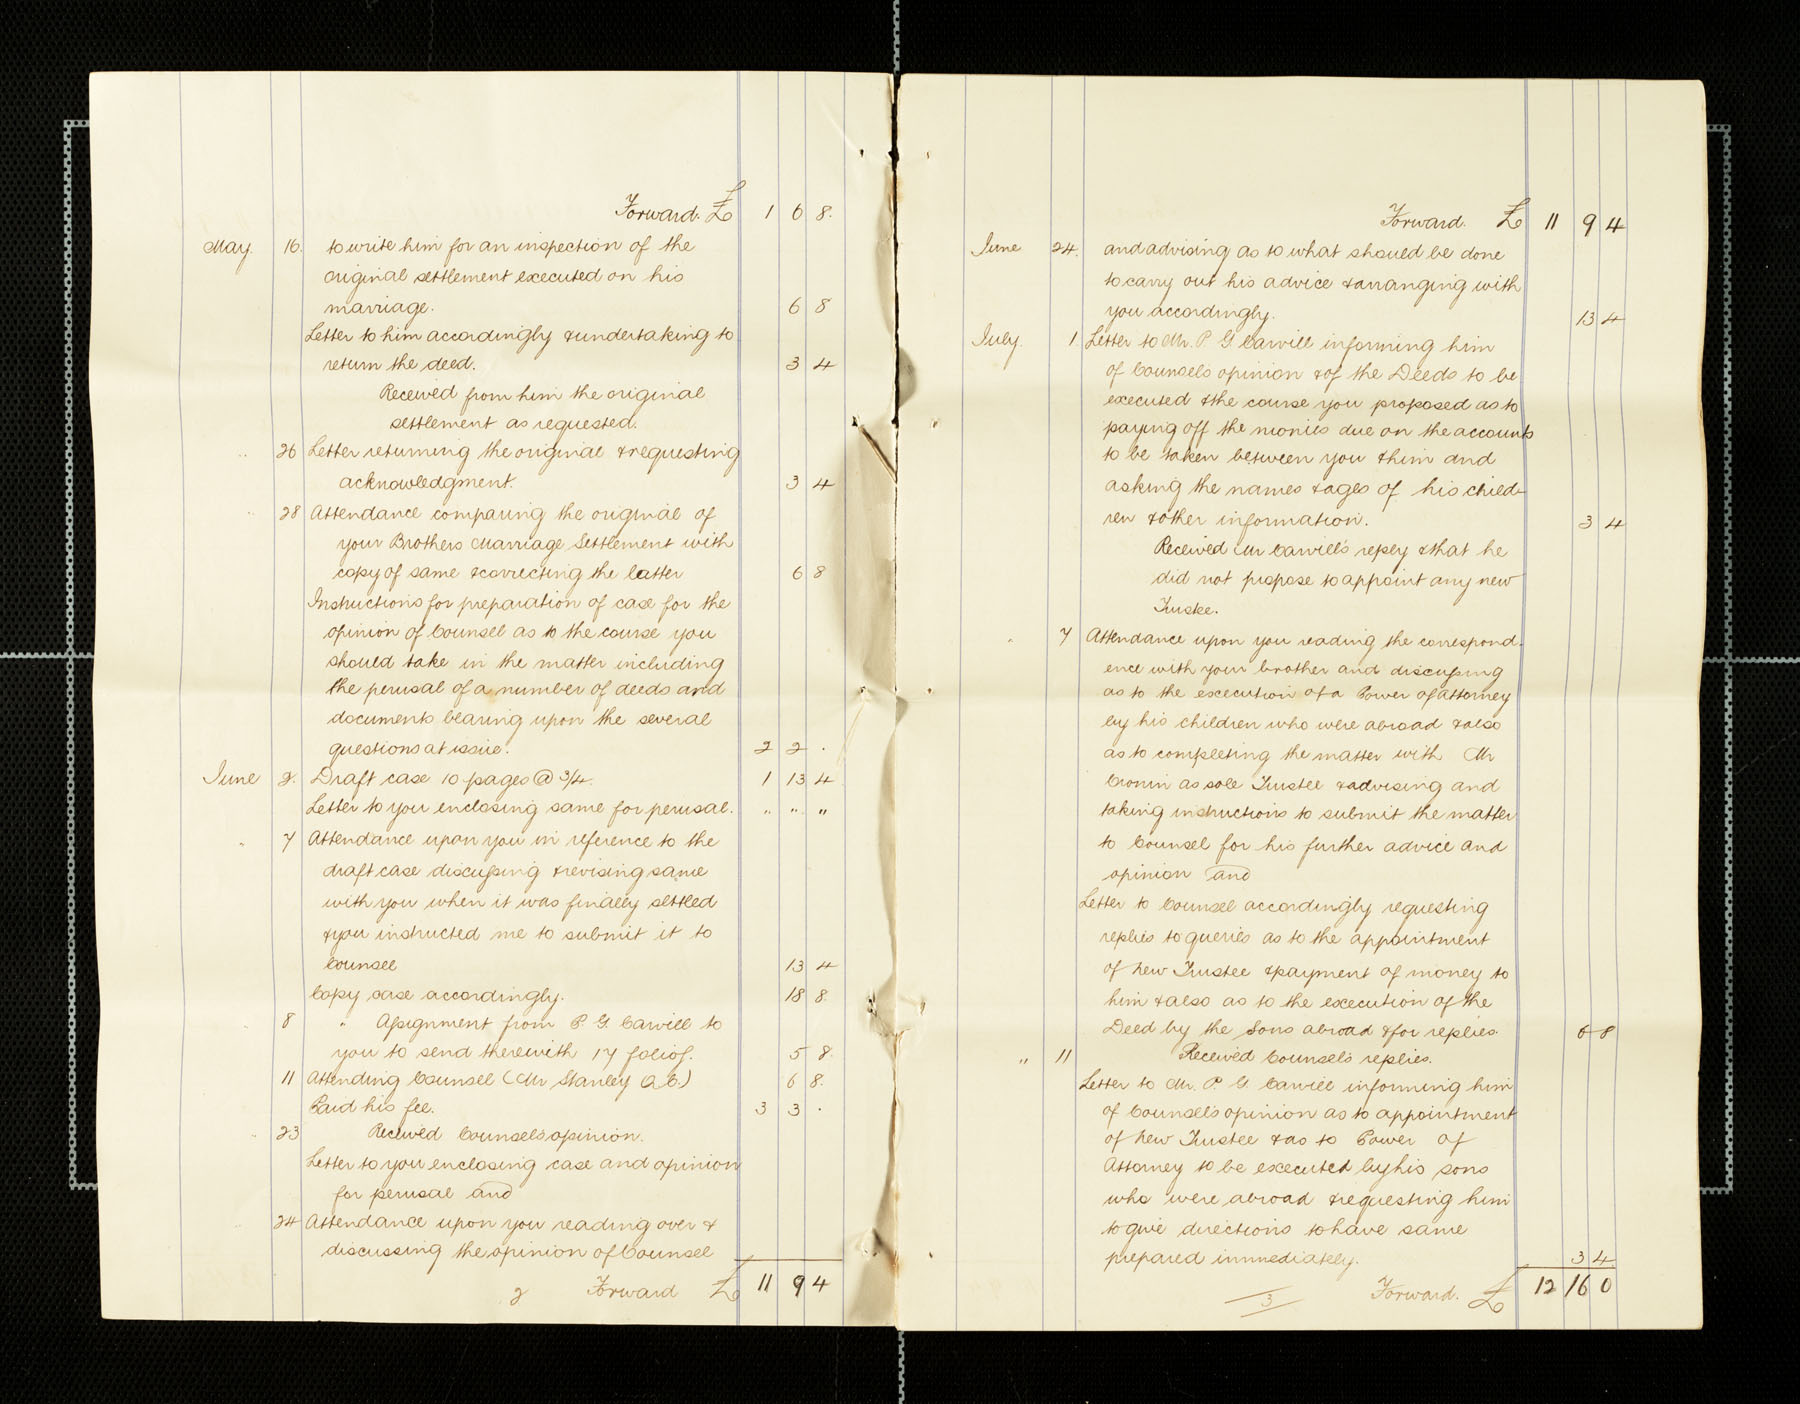 Forward. £ 1 6 8.
May. 16. to write him for an inspection of the
original settlement executed on his
marriage. 6 8
Letter to him accordingly & undertaking to
return the deed. 3 4
Received from him the original
settlement as requested.
" 26 Letter returning the original & requesting
acknowledgment. 3 4
" 28 Attendance comparing the original of
your Brothers Marriage Settlement with
copy of same & correcting the latter 6 8
Instructions for preparation of case for the
opinion of Counsel as to the course you
should take in the matter including
the perusal of a number of deeds and
documents bearing upon the several
questions at issue. 2 2 .
June 2. Draft case 10 pages @ 3/4. 1 13 4
Letter to you enclosing same for perusal. " " "
" 7 Attendance upon you in reference to the
draft case discussing & revising same
with you when it was finally settled
& you instructed me to submit it to
Counsel 13 4
Copy case accordingly. 18 8.
" 8 " Assignment from P. G. Carvill to
you to send therewith 17 folios. 5 8.
11 Attending Counsel (Mr Stanley Q.C.) 6 8.
Paid his fee. 3 3 .
" 23 Received Counsel's opinion.
Letter to you enclosing case and opinion
for perusal and
" 24 Attendance upon you reading over &
discussing the opinion of Counsel
2 Forward £ 11 9 4
Forward. £ 11 9 4
June 24. and advising as to what should be done
to carry out his advice & arranging with
you accordingly. 13 4
July. 1 Letter to Mr. P. G Carvill informing him
of Counsel's opinion & of the Deeds to be
executed & the course you proposed as to
paying off the monies due on the accounts
to be taken between you & him and
asking the names & ages of his child-
ren & other information. 3 4
Received Mr Carvill's reply & that he
did not propose to appoint any new
Trustee.
" 7 Attendance upon you reading the correspond-
ence with your brother and discussing
as to the execution of a Power of Attorney
by his children who were abroad & also
as to completing the matter with Mr
Cronin as sole Trustee & advising and
taking instructions to submit the matter
to Counsel for his further advice and
opinion and
Letter to Counsel accordingly requesting
replies to queries as to the appointment
of new Trustee & payment of money to
him & also as to the execution of the
Deed by the Sons abroad & for replies. 6 8
" 11 Received Counsel's replies.
Letter to Mr. P. G. Carvill informing him
of Counsel's opinion as to appointment
of new Trustee & as to Power of
Attorney to be executed by his sons
who were abroad & requesting him
to give directions to have same
prepared immediately. 3 4
3 Forward. £ 12 16 0